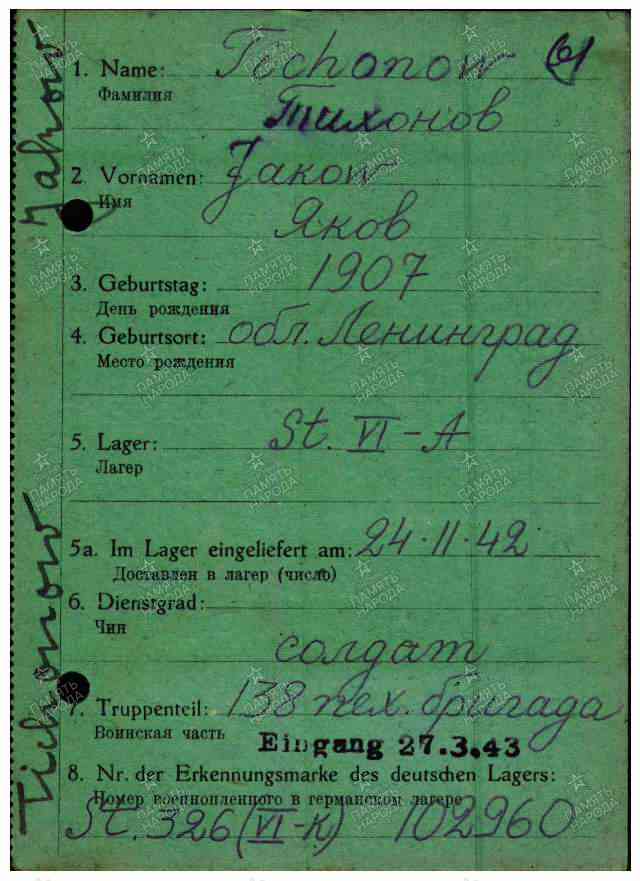 1. Name: Tichonow 61
Фамилия
Тихонов
2. Vornamen: Jakow
Имя
Яков
3. Geburtstag: 1907
День рождения
4. Geburtsort: обл. Ленинград
Место рождения
5. Lager: St. VI-A
Лагер
5a. Im Lager eingeliefert am: 24.11.42
Доставлен в лагер (число)
6. Dienstgrad:
Чин
солдат
7. Truppenteil: 138 пех. бригада
Воинская часть
Eingang 27.3.43
8. Nr. der Erkennungsmarke des deutschen Lagers:
Номер военнопленного в германском лагере
St. 326 (VI-K) 102960
Tichonow Jakow
ПАМЯТЬ
НАРОДА